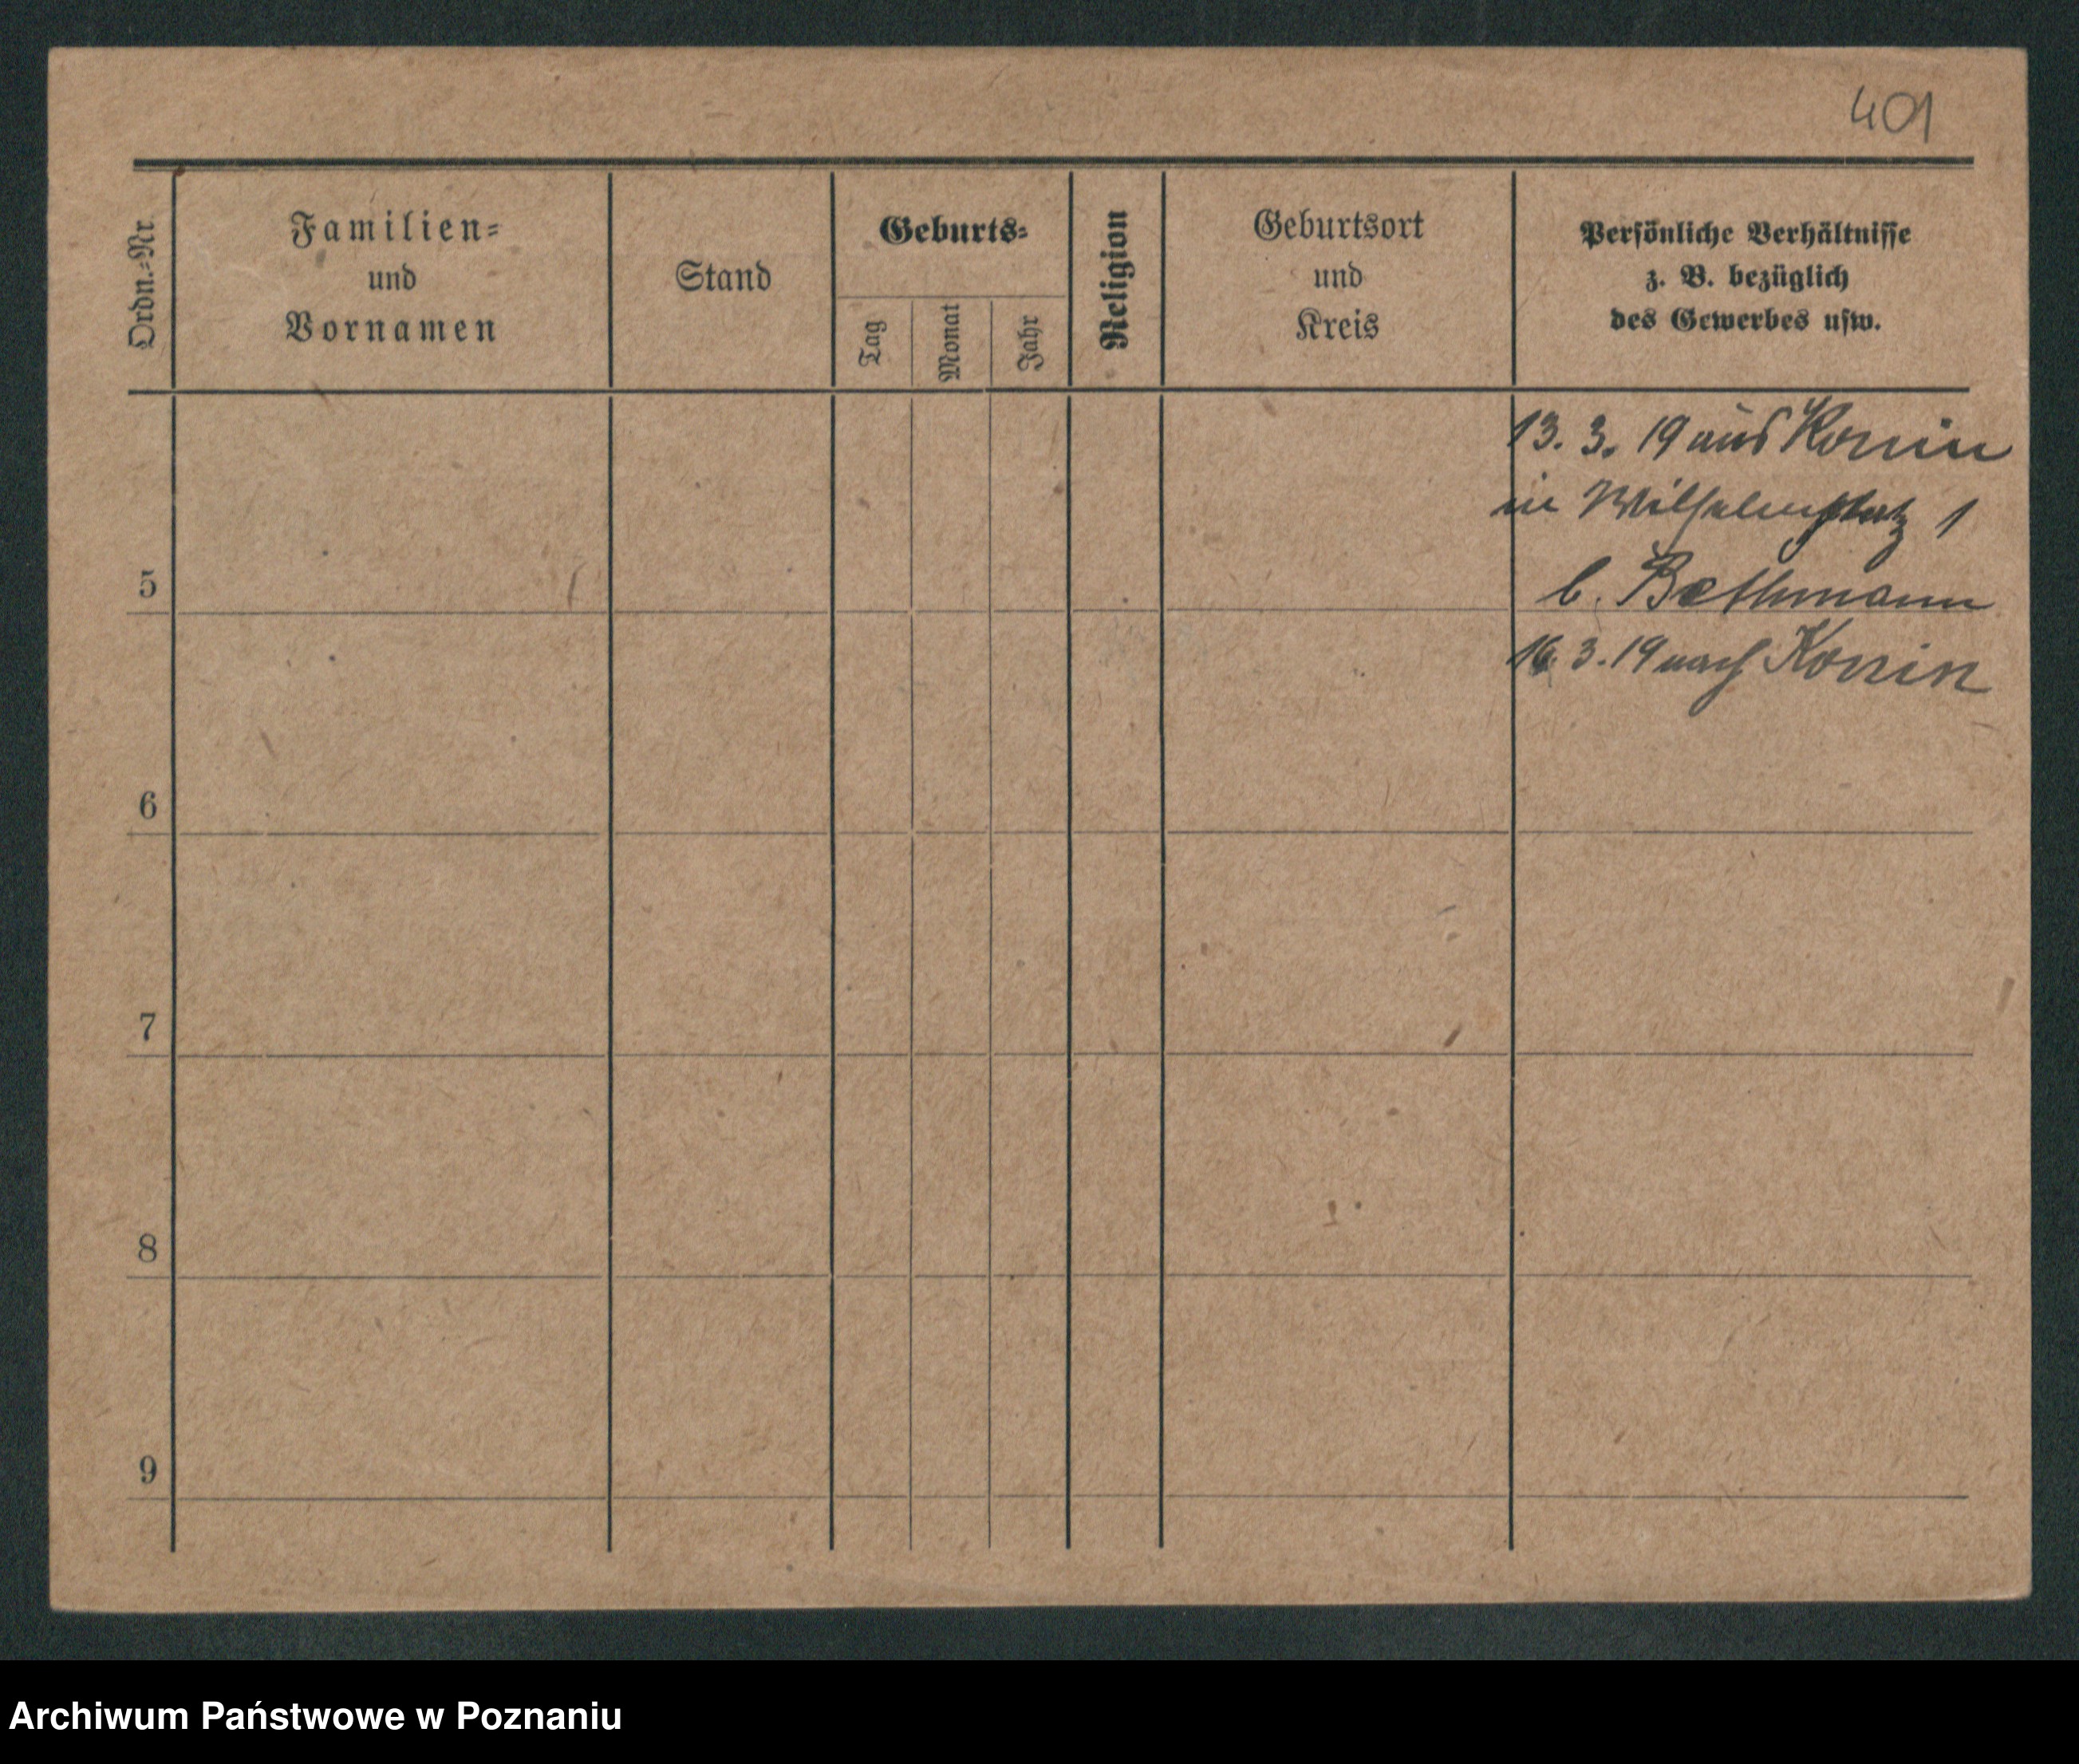 401
Ordn.-Nr.
Familien-
und
Vornamen
Stand
Geburts-
Tag
Monat
Jahr
Religion
Geburtsort
und
Kreis
Persönliche Verhältnisse
z. B. bezüglich
des Gewerbes usw.
13. 3. 19 aus Konin
in Wilhelmplatz 1
b. Bethmann
5
16. 3. 19 nach Konin
6
7
8
9
Archiwum Państwowe w Poznaniu